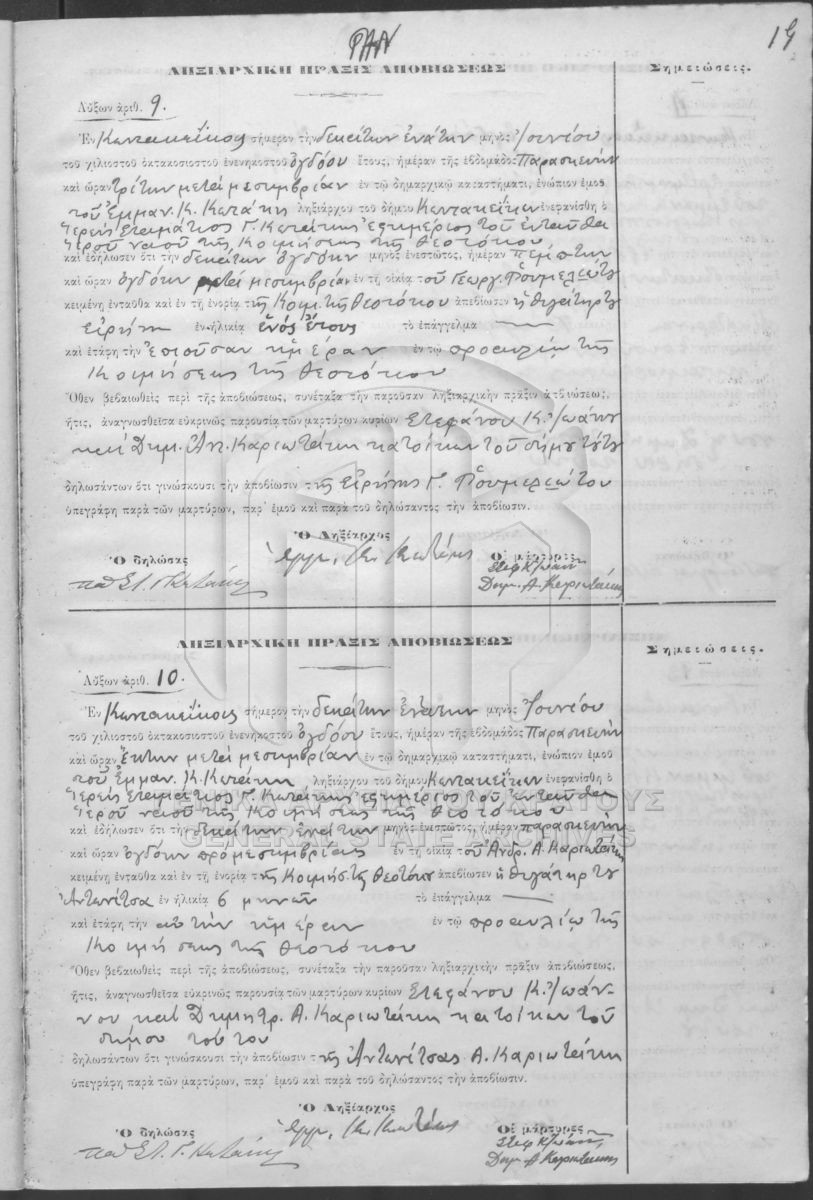 19
ΛΗΞΙΑΡΧΙΚΗ ΠΡΑΞΙΣ ΑΠΟΒΙΩΣΕΩΣ
Σημειώσεις.
Αὔξων ἀριθ. 9.
Ἐν σήμερον τὴν δεκάτην ἐνάτην μηνὸς Ἰουνίου
τοῦ χιλιοστοῦ ὀκτακοσιοστοῦ ἐνενηκοστοῦ ὀγδόου ἔτους, ἡμέραν τῆς ἑβδομάδος Παρασκευὴν
καὶ ὥραν τρίτην μετὰ μεσημβρίαν ἐν τῷ δημαρχικῷ καταστήματι, ἐνώπιον ἐμοῦ
τοῦ Ἐμμαν. Κ. Κωτάκη ληξιάρχου τοῦ δήμου ἐνεφανίσθη ὁ
Ἱερεὺς Σταμάτιος Γ. Κωτάκης ἐφημέριος τοῦ ἐνταῦθα
Ἱεροῦ ναοῦ τῆς Κοιμήσεως τῆς Θεοτόκου
καὶ ἐδήλωσεν ὅτι τὴν δεκάτην ὀγδόην μηνὸς ἐνεστῶτος, ἡμέραν πέμπτην
καὶ ὥραν ὀγδόην μετὰ μεσημβρίαν ἐν τῇ οἰκίᾳ τοῦ Γεωργ. Ῥουμελιώτου
κειμένῃ ἐνταῦθα καὶ ἐν τῇ ἐνορίᾳ τῆς Κοιμ. τῆς Θεοτόκου ἀπεβίωσεν ἡ θυγάτηρ του
Εἰρήνη ἐν ἡλικίᾳ ἑνὸς ἔτους τὸ ἐπάγγελμα —
καὶ ἐτάφη τὴν ἐπιοῦσαν ἡμέραν ἐν τῷ προαυλίῳ τῆς
Κοιμήσεως τῆς Θεοτόκου
Ὅθεν βεβαιωθεὶς περὶ τῆς ἀποβιώσεως, συνέταξα τὴν παροῦσαν ληξιαρχικὴν πρᾶξιν ἀποβιώσεως,
ἥτις, ἀναγνωσθεῖσα εὐκρινῶς παρουσίᾳ τῶν μαρτύρων κυρίων Στεφάνου Κ. Ἰωάννου
καὶ Δημ. Ἀντ. Καριωτάκη κατοίκων τοῦ δήμου τούτου
δηλωσάντων ὅτι γινώσκουσι τὴν ἀποβίωσιν τῆς Εἰρήνης Γ. Ῥουμελιώτου
ὑπεγράφη παρὰ τῶν μαρτύρων, παρ' ἐμοῦ καὶ παρὰ τοῦ δηλώσαντος τὴν ἀποβίωσιν.
Ὁ Ληξίαρχος
Ὁ δηλώσας Ἐμμ. Κ. Κωτάκης Οἱ μάρτυρες
Στεφ Κ Ἰωάν
Δημ. Α. Καριωτάκης
ΛΗΞΙΑΡΧΙΚΗ ΠΡΑΞΙΣ ΑΠΟΒΙΩΣΕΩΣ
Σημειώσεις.
Αὔξων ἀριθ. 10.
Ἐν σήμερον τὴν δεκάτην ἐνάτην μηνὸς Ἰουνίου
τοῦ χιλιοστοῦ ὀκτακοσιοστοῦ ἐνενηκοστοῦ ὀγδόου ἔτους, ἡμέραν τῆς ἑβδομάδος Παρασκευὴν
καὶ ὥραν ἕκτην μετὰ μεσημβρίαν ἐν τῷ δημαρχικῷ καταστήματι, ἐνώπιον ἐμοῦ
τοῦ Ἐμμαν. Κ. Κωτάκη ληξιάρχου τοῦ δήμου ἐνεφανίσθη ὁ
Ἱερεὺς Σταμάτιος Γ. Κωτάκης ἐφημέριος τοῦ ἐνταῦθα
ΓΕΝΙΚΑ ΑΡΧΕΙΑ ΤΟΥ ΚΡΑΤΟΥΣ
Ἱεροῦ ναοῦ τῆς Κοιμήσεως τῆς Θεοτόκου
καὶ ἐδήλωσεν ὅτι τὴν δεκάτην ἐνάτην μηνὸς ἐνεστῶτος, ἡμέραν παρασκευὴν
GENERAL STATE ARCHIVES
καὶ ὥραν ὀγδόην πρὸ μεσημβρίας ἐν τῇ οἰκίᾳ τοῦ Ἀνδρ. Α. Καριωτάκη
κειμένῃ ἐνταῦθα καὶ ἐν τῇ ἐνορίᾳ τῆς Κοιμήσ. τῆς Θεοτόκου ἀπεβίωσεν ἡ θυγάτηρ του
Ἀντωνίτσα ἐν ἡλικίᾳ 6 μηνῶν τὸ ἐπάγγελμα —
καὶ ἐτάφη τὴν αὐτὴν ἡμέραν ἐν τῷ προαυλίῳ τῆς
Κοιμήσεως τῆς Θεοτόκου
Ὅθεν βεβαιωθεὶς περὶ τῆς ἀποβιώσεως, συνέταξα τὴν παροῦσαν ληξιαρχικὴν πρᾶξιν ἀποβιώσεως,
ἥτις, ἀναγνωσθεῖσα εὐκρινῶς παρουσίᾳ τῶν μαρτύρων κυρίων Στεφάνου Κ. Ἰωάν-
νου καὶ Δημητρ. Α. Καριωτάκη κατοίκων τοῦ
δήμου τούτου
δηλωσάντων ὅτι γινώσκουσι τὴν ἀποβίωσιν τῆς Ἀντωνίτσας Α. Καριωτάκη
ὑπεγράφη παρὰ τῶν μαρτύρων, παρ' ἐμοῦ καὶ παρὰ τοῦ δηλώσαντος τὴν ἀποβίωσιν.
Ὁ Ληξίαρχος
Ὁ δηλώσας Ἐμμ. Κ. Κωτάκης Οἱ μάρτυρες
Στεφ Κ Ἰωάν
Δημ. Α. Καριωτάκης